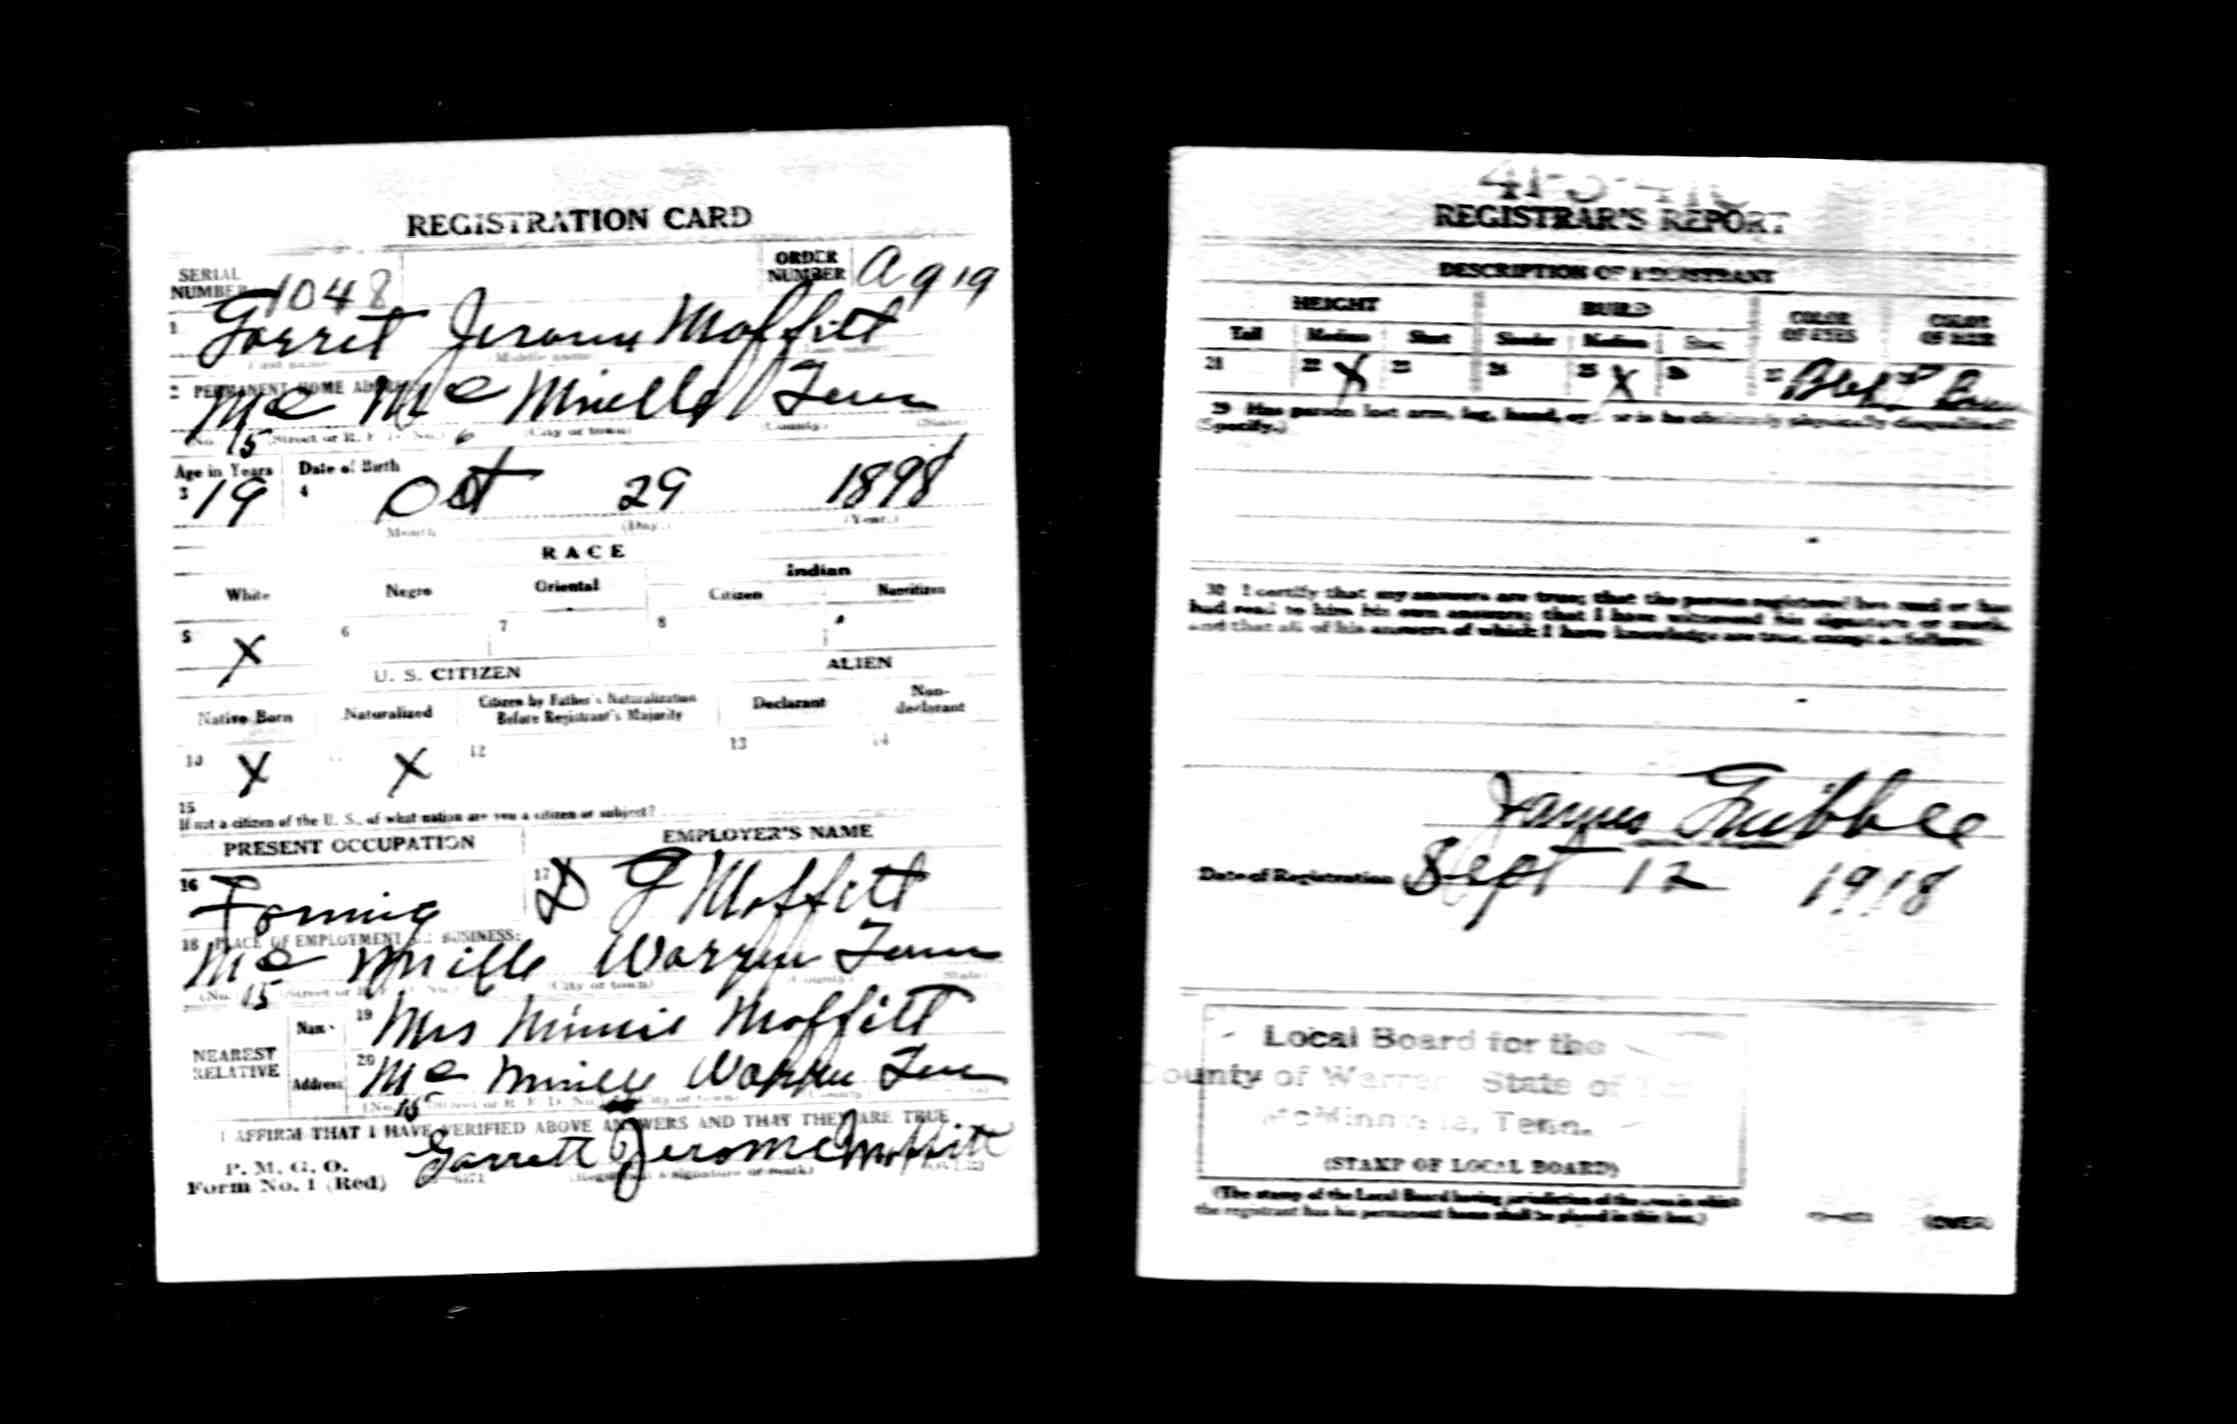 REGISTRATION CARD
SERIAL NUMBER 1048
ORDER NUMBER A 919
1 Garret Jerome Moffitt
Middle name
2 PERMANENT HOME ADDRESS
Mc Mc Mnielle Tenn
(No.) 15 (Street or R. F. D. No.) 6 (City or town) (County) (State)
Age in Years
Date of Birth
3 19
4 Oct 29 1898
Month (Day.) (Year.)
RACE
White
Negro
Oriental
Indian
Citizen
Noncitizen
5 X
6
7
8
U. S. CITIZEN
ALIEN
Native Born
Naturalized
Citizen by Father's Naturalization
Before Registrant's Majority
Declarant
Non-
declarant
10 X
X
12
13
14
15
If not a citizen of the U. S., of what nation are you a citizen or subject?
PRESENT OCCUPATION
EMPLOYER'S NAME
16 Farming
17 D G Moffitt
18 PLACE OF EMPLOYMENT OR BUSINESS:
Mc Mnielle Warren Tenn
(No.) 15 (Street or R. F. D. No.) (City or town) (County) (State)
NEAREST
RELATIVE
Name
19 Mrs Minnie Moffitt
Address
20 Mc Mnielle Warren Tenn
(No.) 15 (Street or R. F. D. No.) (City or town) (County)
I AFFIRM THAT I HAVE VERIFIED ABOVE ANSWERS AND THAT THEY ARE TRUE
P. M. G. O.
Form No. 1 (Red)
Garrett Jerome Moffitt
(Registrant's signature or mark) (OVER)
REGISTRAR'S REPORT
DESCRIPTION OF REGISTRANT
HEIGHT
BUILD
COLOR
OF EYES
COLOR
OF HAIR
Tall
Medium
Short
Slender
Medium
Stout
21
22 X
23
24
25 X
26
27
28
29 Has person lost arm, leg, hand, eye, or is he obviously physically disqualified?
(Specify.)
30 I certify that my answers are true; that the person registered has read or has
had read to him his own answers; that I have witnessed his signature or mark,
and that all of his answers of which I have knowledge are true, except as follows:
James
Date of Registration Sept 12 1918
Local Board for the
County of Warren State of
McMinnville, Tenn.
(STAMP OF LOCAL BOARD)
(The stamp of the Local Board having jurisdiction of the area in which
the registrant has his permanent home shall be placed in this box.)
(OVER)